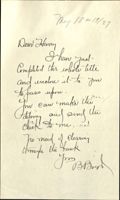 May 18 1927
Dear Harry
I have just
completed the whole title
and enclose it to you
to pass upon.
You can make the
and send the
check to me
No need of clearing
through the bank
Yours